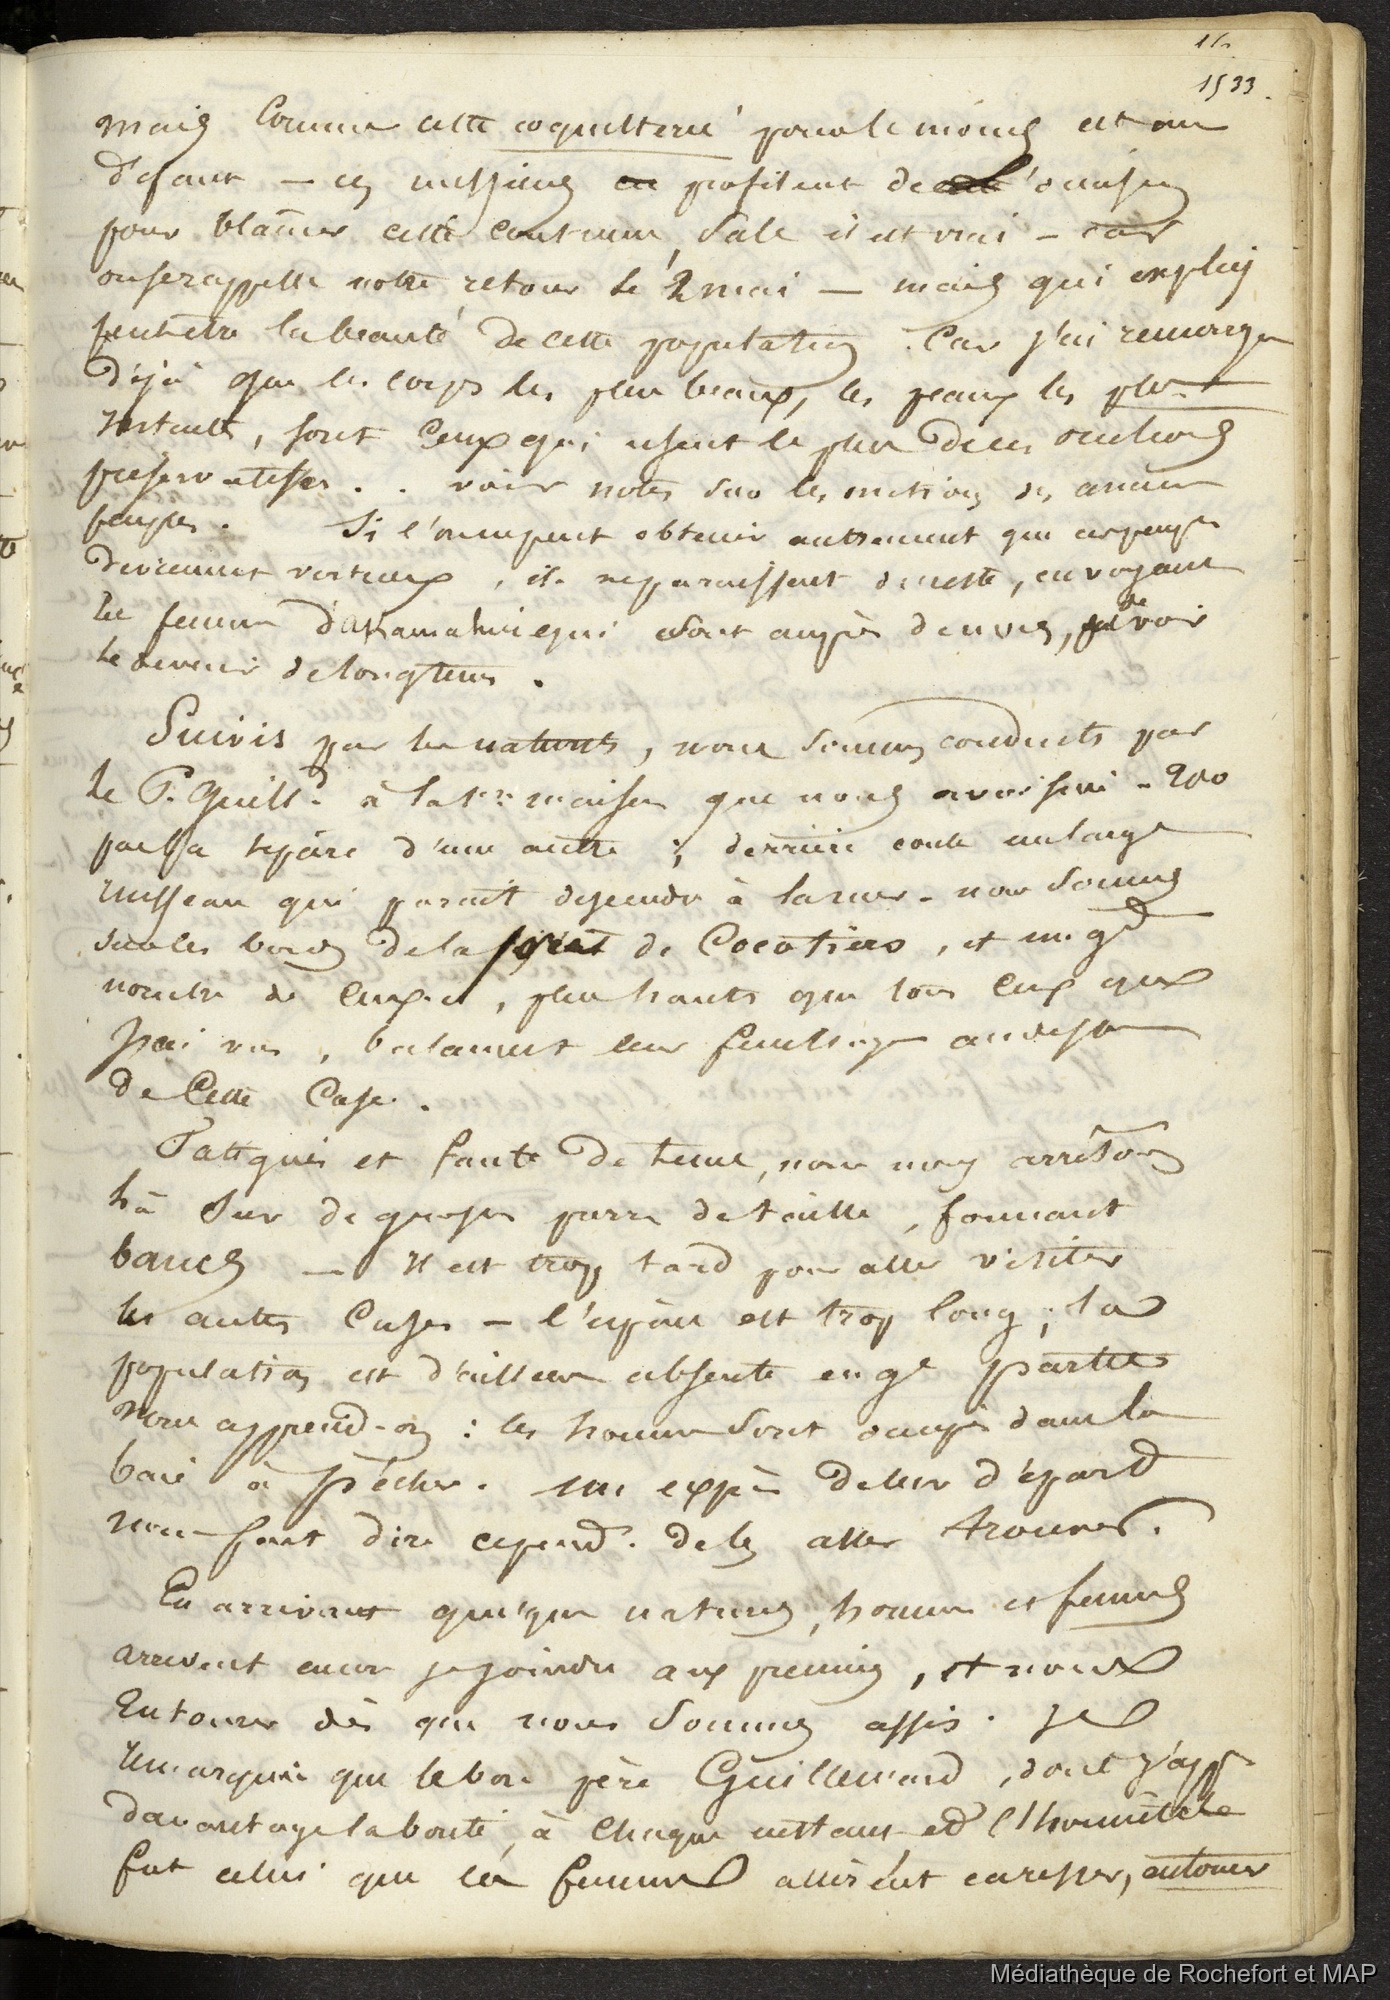 1533.
mais comme cette coquetterie pour le moins est un
défaut — ces messieurs en profitent de l'occasion
pour blamer cette coutume, sale il est vrai — car
on se rappelle notre retour le 2 mai — mais qui expliq
peutêtre la beauté de cette population. Car j'ai remarqu
déjà que les corps les plus beaux, les peaux les plus
, sont ceux qui usent le plus de ces onctions
preservatifs . . voir notes sur les onctions des anciens
peuples. Si l'on ne peut obtenir autrement que ces peuples
deviennent vertueux, ils ne paraissent du reste, en voyant
les femmes d'akamaru qui sont auprès d'euves, de voir
le devenir de longtems.
Suivis par les naturels, nous sommes conduits par
le P. Guilld. à la 1re maison que nous avoisine - 200
pas la sépare d'une autre ; derrière coule un large
ruisseau qui parait descendre à la mer. nous sommes
sur les bords de la forêt de Cocotiers, et un gd
nombre de ceux-ci, plus hauts que tous ceux que
j'ai vus, balancent leur feuillage au dessus
de Cette Case.
Fatigués et faute de tems, nous nous arrêtons
là sur de grosses pierres de taille, formant
bancs — Il est trop tard pour aller visiter
les autres Cases — l'espace est trop long ; la
population est d'ailleurs absente en ge partie
nous apprend-on : les hommes sont occupés dans la
baie à pêcher. un exprès de leur départ
nous fait dire cepend. de les aller trouver.
En arrivant quelques naturels, hommes et femmes
arrivent encore se joindre aux premiers, et nous
Entourer dès que nous sommes assis. Je
remarquai que le bon père Guillemard, dont j'app.
davantage la bonté, à chaque instant et l'honnêteté
fut celui que les femmes allèrent caresser, entourer
Médiathèque de Rochefort et MAP